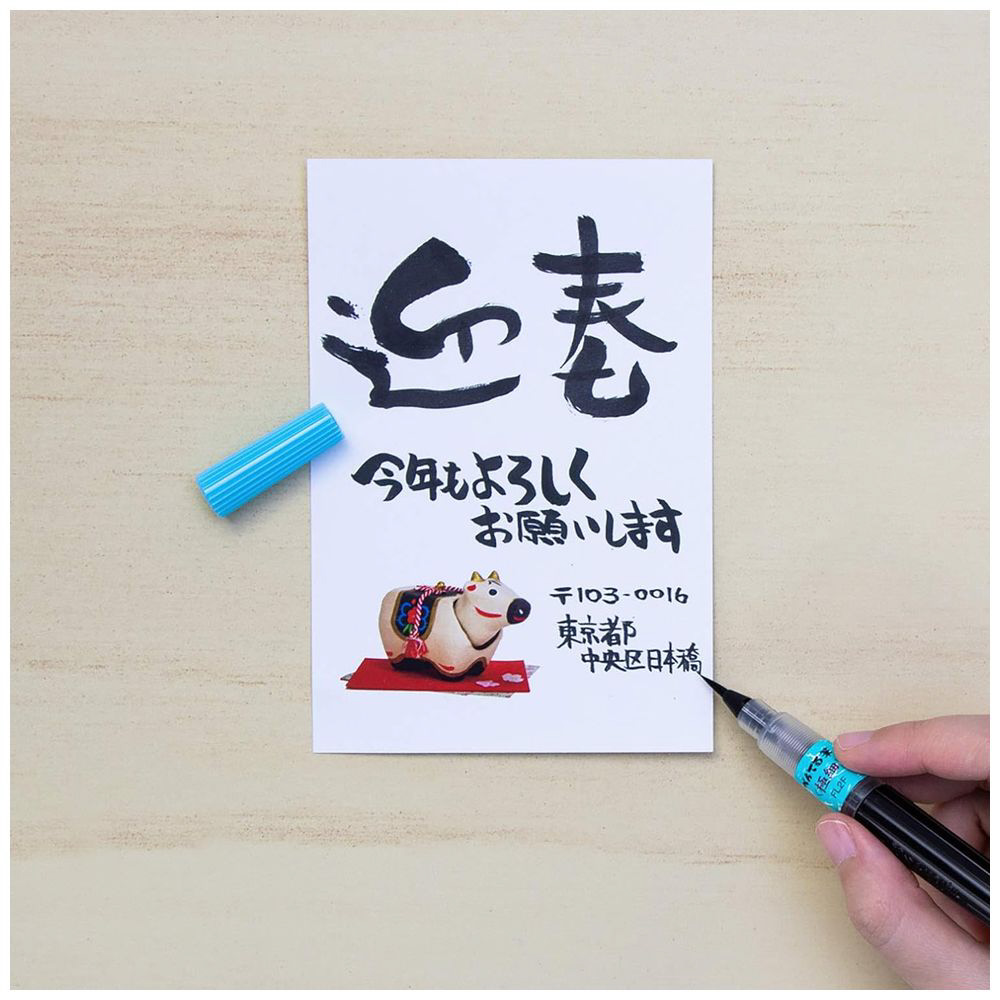 迎春
今年もよろしく
お願いします
〒103-0016
東京都
中央区日本橋
極細
FL2F